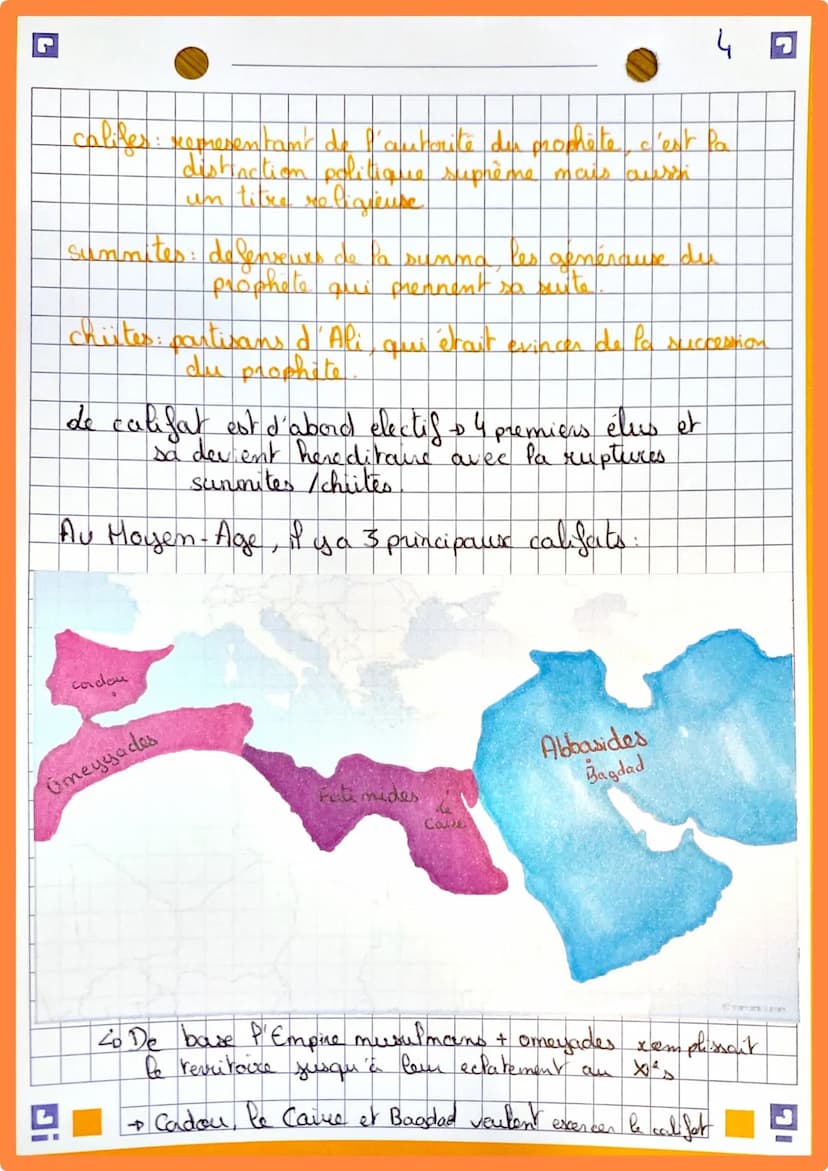 4
califes: representant de l'autorité du prophète, c'est la
distinction politique suprême mais aussi
un titre religieuse
sunnites: defenseurs de la sunna, les générause du
prophète qui prennent sa suite.
chiites: partisans d'Ali, qui était evincer de la succession
du prophète.
Le califat est d'abord electif → 4 premiers élus et
sa devient hereditaire avec la ruptures
sunnites / chiites.
Au Moyen-Age, il y a 3 principaux califats:
Cordou
Omeyyades
Fatimides
Le
Caire
Abbasides
Bagdad
↳ De base l'Empire musulmans + omeyades remplissait
le territoire jusqu'à leur eclatement au
→ Cordou, le Caire et Bagdad veulent exercer le califat